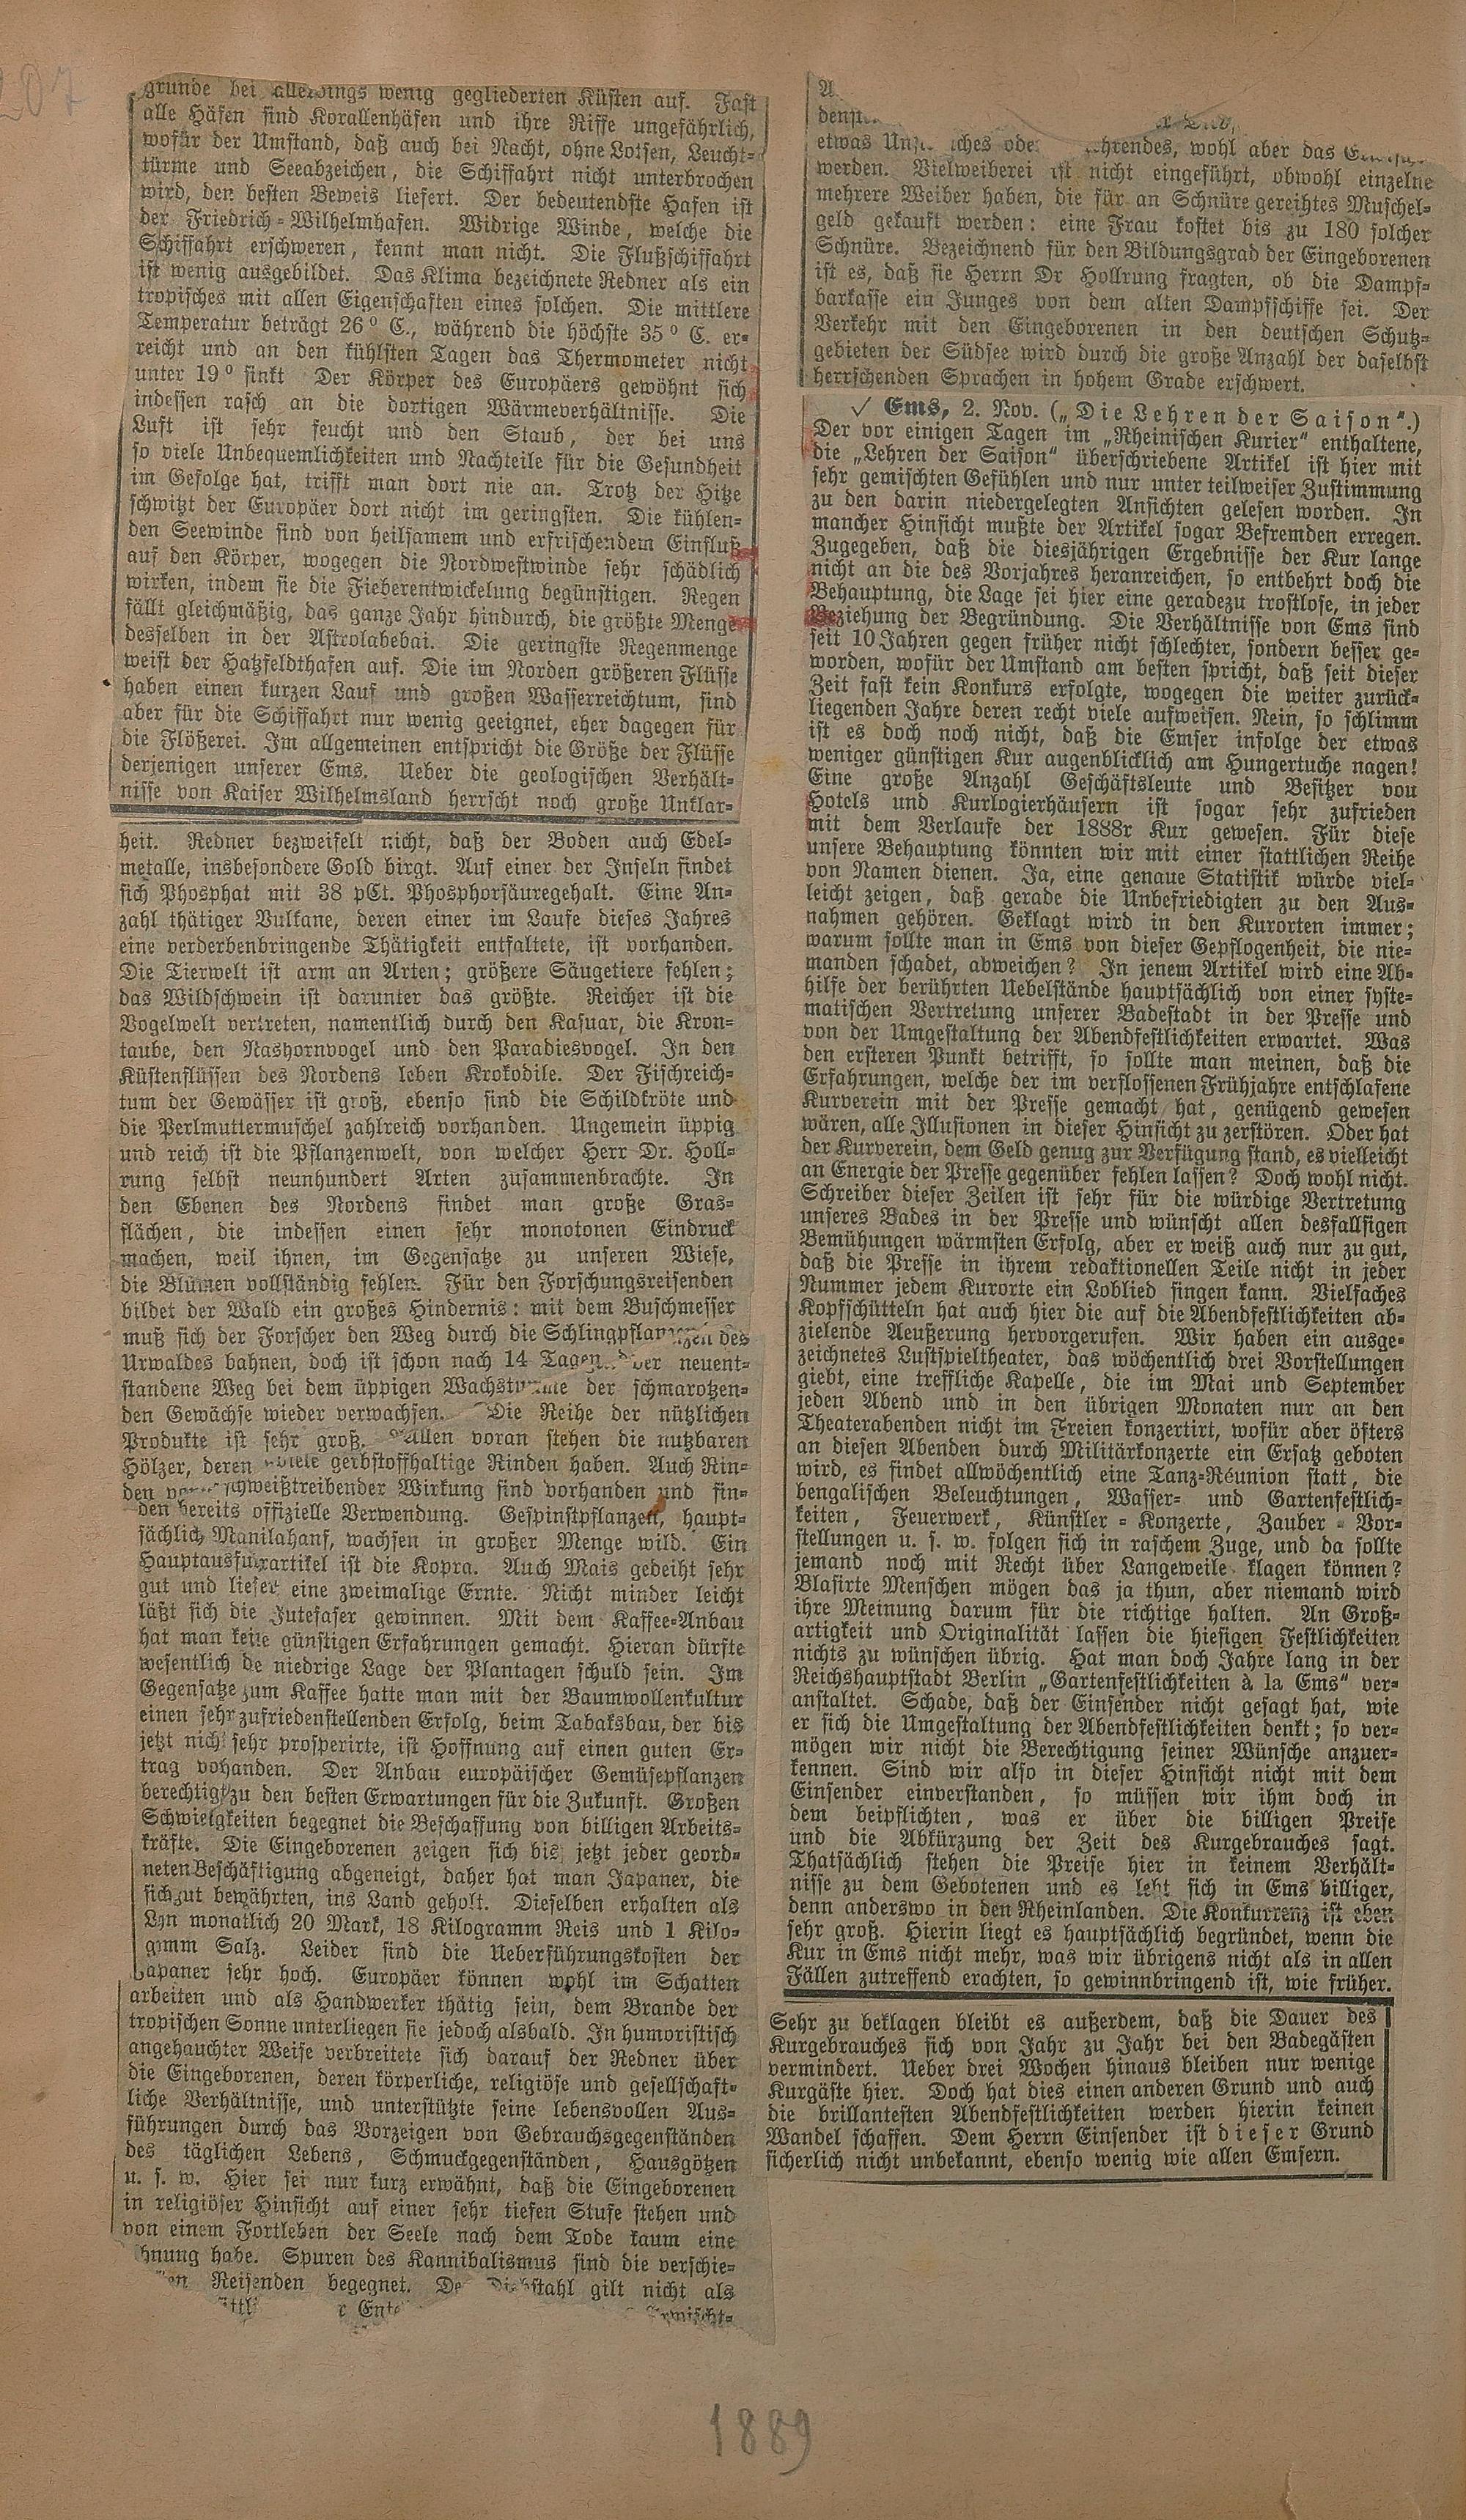 207
grunde bei allerdings wenig gegliederten Küsten auf. Fast
alle Häfen sind Korallenhäfen und ihre Riffe ungefährlich,
wofür der Umstand, daß auch bei Nacht, ohne Lotsen, Leucht-
türme und Seeabzeichen, die Schiffahrt nicht unterbrochen
wird, den besten Beweis liefert. Der bedeutendste Hafen ist
der Friedrich-Wilhelmhafen. Widrige Winde, welche die
Schiffahrt erschweren, kennt man nicht. Die Flußschiffahrt
ist wenig ausgebildet. Das Klima bezeichnete Redner als ein
tropisches mit allen Eigenschaften eines solchen. Die mittlere
Temperatur beträgt 26° C., während die höchste 35° C. er-
reicht und an den kühlsten Tagen das Thermometer nicht
unter 19° sinkt Der Körper des Europäers gewöhnt sich
indessen rasch an die dortigen Wärmeverhältnisse. Die
Luft ist sehr feucht und den Staub, der bei uns
so viele Unbequemlichkeiten und Nachteile für die Gesundheit
im Gefolge hat, trifft man dort nie an. Trotz der Hitze
schwitzt der Europäer dort nicht im geringsten. Die kühlen-
den Seewinde sind von heilsamem und erfrischendem Einfluß
auf den Körper, wogegen die Nordwestwinde sehr schädlich
wirken, indem sie die Fieberentwickelung begünstigen. Regen
fällt gleichmäßig, das ganze Jahr hindurch, die größte Menge
desselben in der Astrolabebai. Die geringste Regenmenge
weist der Hatzfeldthafen auf. Die im Norden größeren Flüsse
haben einen kurzen Lauf und großen Wasserreichtum, sind
aber für die Schiffahrt nur wenig geeignet, eher dagegen für
die Flößerei. Im allgemeinen entspricht die Größe der Flüsse
derjenigen unserer Ems. Ueber die geologischen Verhält-
nisse von Kaiser Wilhelmsland herrscht noch große Unklar-
heit. Redner bezweifelt nicht, daß der Boden auch Edel-
metalle, insbesondere Gold birgt. Auf einer der Inseln findet
sich Phosphat mit 38 pCt. Phosphorsäuregehalt. Eine An-
zahl thätiger Vulkane, deren einer im Laufe dieses Jahres
eine verderbenbringende Thätigkeit entfaltete, ist vorhanden.
Die Tierwelt ist arm an Arten; größere Säugetiere fehlen;
das Wildschwein ist darunter das größte. Reicher ist die
Vogelwelt vertreten, namentlich durch den Kasuar, die Kron-
taube, den Nashornvogel und den Paradiesvogel. In den
Küstenflüssen des Nordens leben Krokodile. Der Fischreich-
tum der Gewässer ist groß, ebenso sind die Schildkröte und
die Perlmuttermuschel zahlreich vorhanden. Ungemein üppig
und reich ist die Pflanzenwelt, von welcher Herr Dr. Holl-
rung selbst neunhundert Arten zusammenbrachte. In
den Ebenen des Nordens findet man große Gras-
flächen, die indessen einen sehr monotonen Eindruck
machen, weil ihnen, im Gegensatze zu unseren Wiese,
die Blumen vollständig fehlen. Für den Forschungsreisenden
bildet der Wald ein großes Hindernis: mit dem Buschmesser
muß sich der Forscher den Weg durch die Schlingpflanzen des
Urwaldes bahnen, doch ist schon nach 14 Tagen der neuent-
standene Weg bei dem üppigen Wachstume der schmarotzen-
den Gewächse wieder verwachsen. Die Reihe der nützlichen
Produkte ist sehr groß. Allen voran stehen die nutzbaren
Hölzer, deren viele gerbstoffhaltige Rinden haben. Auch Rin-
den schweißtreibender Wirkung sind vorhanden und fin-
den bereits offizielle Verwendung. Gespinstpflanzen, haupt-
sächlich Manilahanf, wachsen in großer Menge wild. Ein
Hauptausfuhrartikel ist die Kopra. Auch Mais gedeiht sehr
gut und liefert eine zweimalige Ernte. Nicht minder leicht
läßt sich die Jutefaser gewinnen. Mit dem Kaffee-Anbau
hat man keine günstigen Erfahrungen gemacht. Hieran dürfte
wesentlich de niedrige Lage der Plantagen schuld sein. Im
Gegensatze zum Kaffee hatte man mit der Baumwollenkultur
einen sehr zufriedenstellenden Erfolg, beim Tabaksbau, der bis
jetzt nicht sehr prosperirte, ist Hoffnung auf einen guten Er-
trag vohanden. Der Anbau europäischer Gemüsepflanzen
berechtigt zu den besten Erwartungen für die Zukunft. Großen
Schwieigkeiten begegnet die Beschaffung von billigen Arbeits-
kräfte. Die Eingeborenen zeigen sich bis jetzt jeder geord-
neten Beschäftigung abgeneigt, daher hat man Japaner, die
sich gut bewährten, ins Land geholt. Dieselben erhalten als
Lohn monatlich 20 Mark, 18 Kilogramm Reis und 1 Kilo-
gramm Salz. Leider sind die Ueberführungskosten der
Japaner sehr hoch. Europäer können wohl im Schatten
arbeiten und als Handwerker thätig sein, dem Brande der
tropischen Sonne unterliegen sie jedoch alsbald. In humoristisch
angehauchter Weise verbreitete sich darauf der Redner über
die Eingeborenen, deren körperliche, religiöse und gesellschaft-
liche Verhältnisse, und unterstützte seine lebensvollen Aus-
führungen durch das Vorzeigen von Gebrauchsgegenständen
des täglichen Lebens, Schmuckgegenständen, Hausgötzen
u. s. w. Hier sei nur kurz erwähnt, daß die Eingeborenen
in religiöser Hinsicht auf einer sehr tiefen Stufe stehen und
von einem Fortleben der Seele nach dem Tode kaum eine
hnung habe. Spuren des Kannibalismus sind die verschie-
en Reisenden begegnet. De Diebstahl gilt nicht als
etwas Uns ches ode hrendes, wohl aber das
werden. Vielweiberei ist nicht eingeführt, obwohl einzelne
mehrere Weiber haben, die für an Schnüre gereihtes Muschel-
geld gekauft werden: eine Frau kostet bis zu 180 solcher
Schnüre. Bezeichnend für den Bildungsgrad der Eingeborenen
ist es, daß sie Herrn Dr Hollrung fragten, ob die Dampf-
barkasse ein Junges von dem alten Dampfschiffe sei. Der
Verkehr mit den Eingeborenen in den deutschen Schutz-
gebieten der Südsee wird durch die große Anzahl der daselbst
herrschenden Sprachen in hohem Grade erschwert.
✓ Ems, 2. Nov. („Die Lehren der Saison“.)
Der vor einigen Tagen im „Rheinischen Kurier“ enthaltene,
die „Lehren der Saison“ überschriebene Artikel ist hier mit
sehr gemischten Gefühlen und nur unter teilweiser Zustimmung
zu den darin niedergelegten Ansichten gelesen worden. In
mancher Hinsicht mußte der Artikel sogar Befremden erregen.
Zugegeben, daß die diesjährigen Ergebnisse der Kur lange
nicht an die des Vorjahres heranreichen, so entbehrt doch die
Behauptung, die Lage sei hier eine geradezu trostlose, in jeder
Beziehung der Begründung. Die Verhältnisse von Ems sind
seit 10 Jahren gegen früher nicht schlechter, sondern besser ge-
worden, wofür der Umstand am besten spricht, daß seit dieser
Zeit fast kein Konkurs erfolgte, wogegen die weiter zurück-
liegenden Jahre deren recht viele aufweisen. Nein, so schlimm
ist es doch noch nicht, daß die Emser infolge der etwas
weniger günstigen Kur augenblicklich am Hungertuche nagen!
Eine große Anzahl Geschäftsleute und Besitzer von
Hotels und Kurlogierhäusern ist sogar sehr zufrieden
mit dem Verlaufe der 1888r Kur gewesen. Für diese
unsere Behauptung könnten wir mit einer stattlichen Reihe
von Namen dienen. Ja, eine genaue Statistik würde viel-
leicht zeigen, daß gerade die Unbefriedigten zu den Aus-
nahmen gehören. Geklagt wird in den Kurorten immer;
warum sollte man in Ems von dieser Gepflogenheit, die nie-
manden schadet, abweichen? In jenem Artikel wird eine Ab-
hilfe der berührten Uebelstände hauptsächlich von einer syste-
matischen Vertretung unserer Badestadt in der Presse und
von der Umgestaltung der Abendfestlichkeiten erwartet. Was
den ersteren Punkt betrifft, so sollte man meinen, daß die
Erfahrungen, welche der im verflossenen Frühjahre entschlafene
Kurverein mit der Presse gemacht hat, genügend gewesen
wären, alle Illusionen in dieser Hinsicht zu zerstören. Oder hat
der Kurverein, dem Geld genug zur Verfügung stand, es vielleicht
an Energie der Presse gegenüber fehlen lassen? Doch wohl nicht.
Schreiber dieser Zeilen ist sehr für die würdige Vertretung
unseres Bades in der Presse und wünscht allen desfallsigen
Bemühungen wärmsten Erfolg, aber er weiß auch nur zu gut,
daß die Presse in ihrem redaktionellen Teile nicht in jeder
Nummer jedem Kurorte ein Loblied singen kann. Vielfaches
Kopfschütteln hat auch hier die auf die Abendfestlichkeiten ab-
zielende Aeußerung hervorgerufen. Wir haben ein ausge-
zeichnetes Lustspieltheater, das wöchentlich drei Vorstellungen
giebt, eine treffliche Kapelle, die im Mai und September
jeden Abend und in den übrigen Monaten nur an den
Theaterabenden nicht im Freien konzertirt, wofür aber öfters
an diesen Abenden durch Militärkonzerte ein Ersatz geboten
wird, es findet allwöchentlich eine Tanz-Réunion statt, die
bengalischen Beleuchtungen, Wasser- und Gartenfestlich-
keiten, Feuerwerk, Künstler-Konzerte, Zauber-Vor-
stellungen u. s. w. folgen sich in raschem Zuge, und da sollte
jemand noch mit Recht über Langeweile klagen können?
Blasirte Menschen mögen das ja thun, aber niemand wird
ihre Meinung darum für die richtige halten. An Groß-
artigkeit und Originalität lassen die hiesigen Festlichkeiten
nichts zu wünschen übrig. Hat man doch Jahre lang in der
Reichshauptstadt Berlin „Gartenfestlichkeiten à la Ems“ ver-
anstaltet. Schade, daß der Einsender nicht gesagt hat, wie
er sich die Umgestaltung der Abendfestlichkeiten denkt; so ver-
mögen wir nicht die Berechtigung seiner Wünsche anzuer-
kennen. Sind wir also in dieser Hinsicht nicht mit dem
Einsender einverstanden, so müssen wir ihm doch in
dem beipflichten, was er über die billigen Preise
und die Abkürzung der Zeit des Kurgebrauches sagt.
Thatsächlich stehen die Preise hier in keinem Verhält-
nisse zu dem Gebotenen und es lebt sich in Ems billiger,
denn anderswo in den Rheinlanden. Die Konkurrenz ist eben
sehr groß. Hierin liegt es hauptsächlich begründet, wenn die
Kur in Ems nicht mehr, was wir übrigens nicht als in allen
Fällen zutreffend erachten, so gewinnbringend ist, wie früher.
Sehr zu beklagen bleibt es außerdem, daß die Dauer des
Kurgebrauches sich von Jahr zu Jahr bei den Badegästen
vermindert. Ueber drei Wochen hinaus bleiben nur wenige
Kurgäste hier. Doch hat dies einen anderen Grund und auch
die brillantesten Abendfestlichkeiten werden hierin keinen
Wandel schaffen. Dem Herrn Einsender ist dieser Grund
sicherlich nicht unbekannt, ebenso wenig wie allen Emsern.
1889